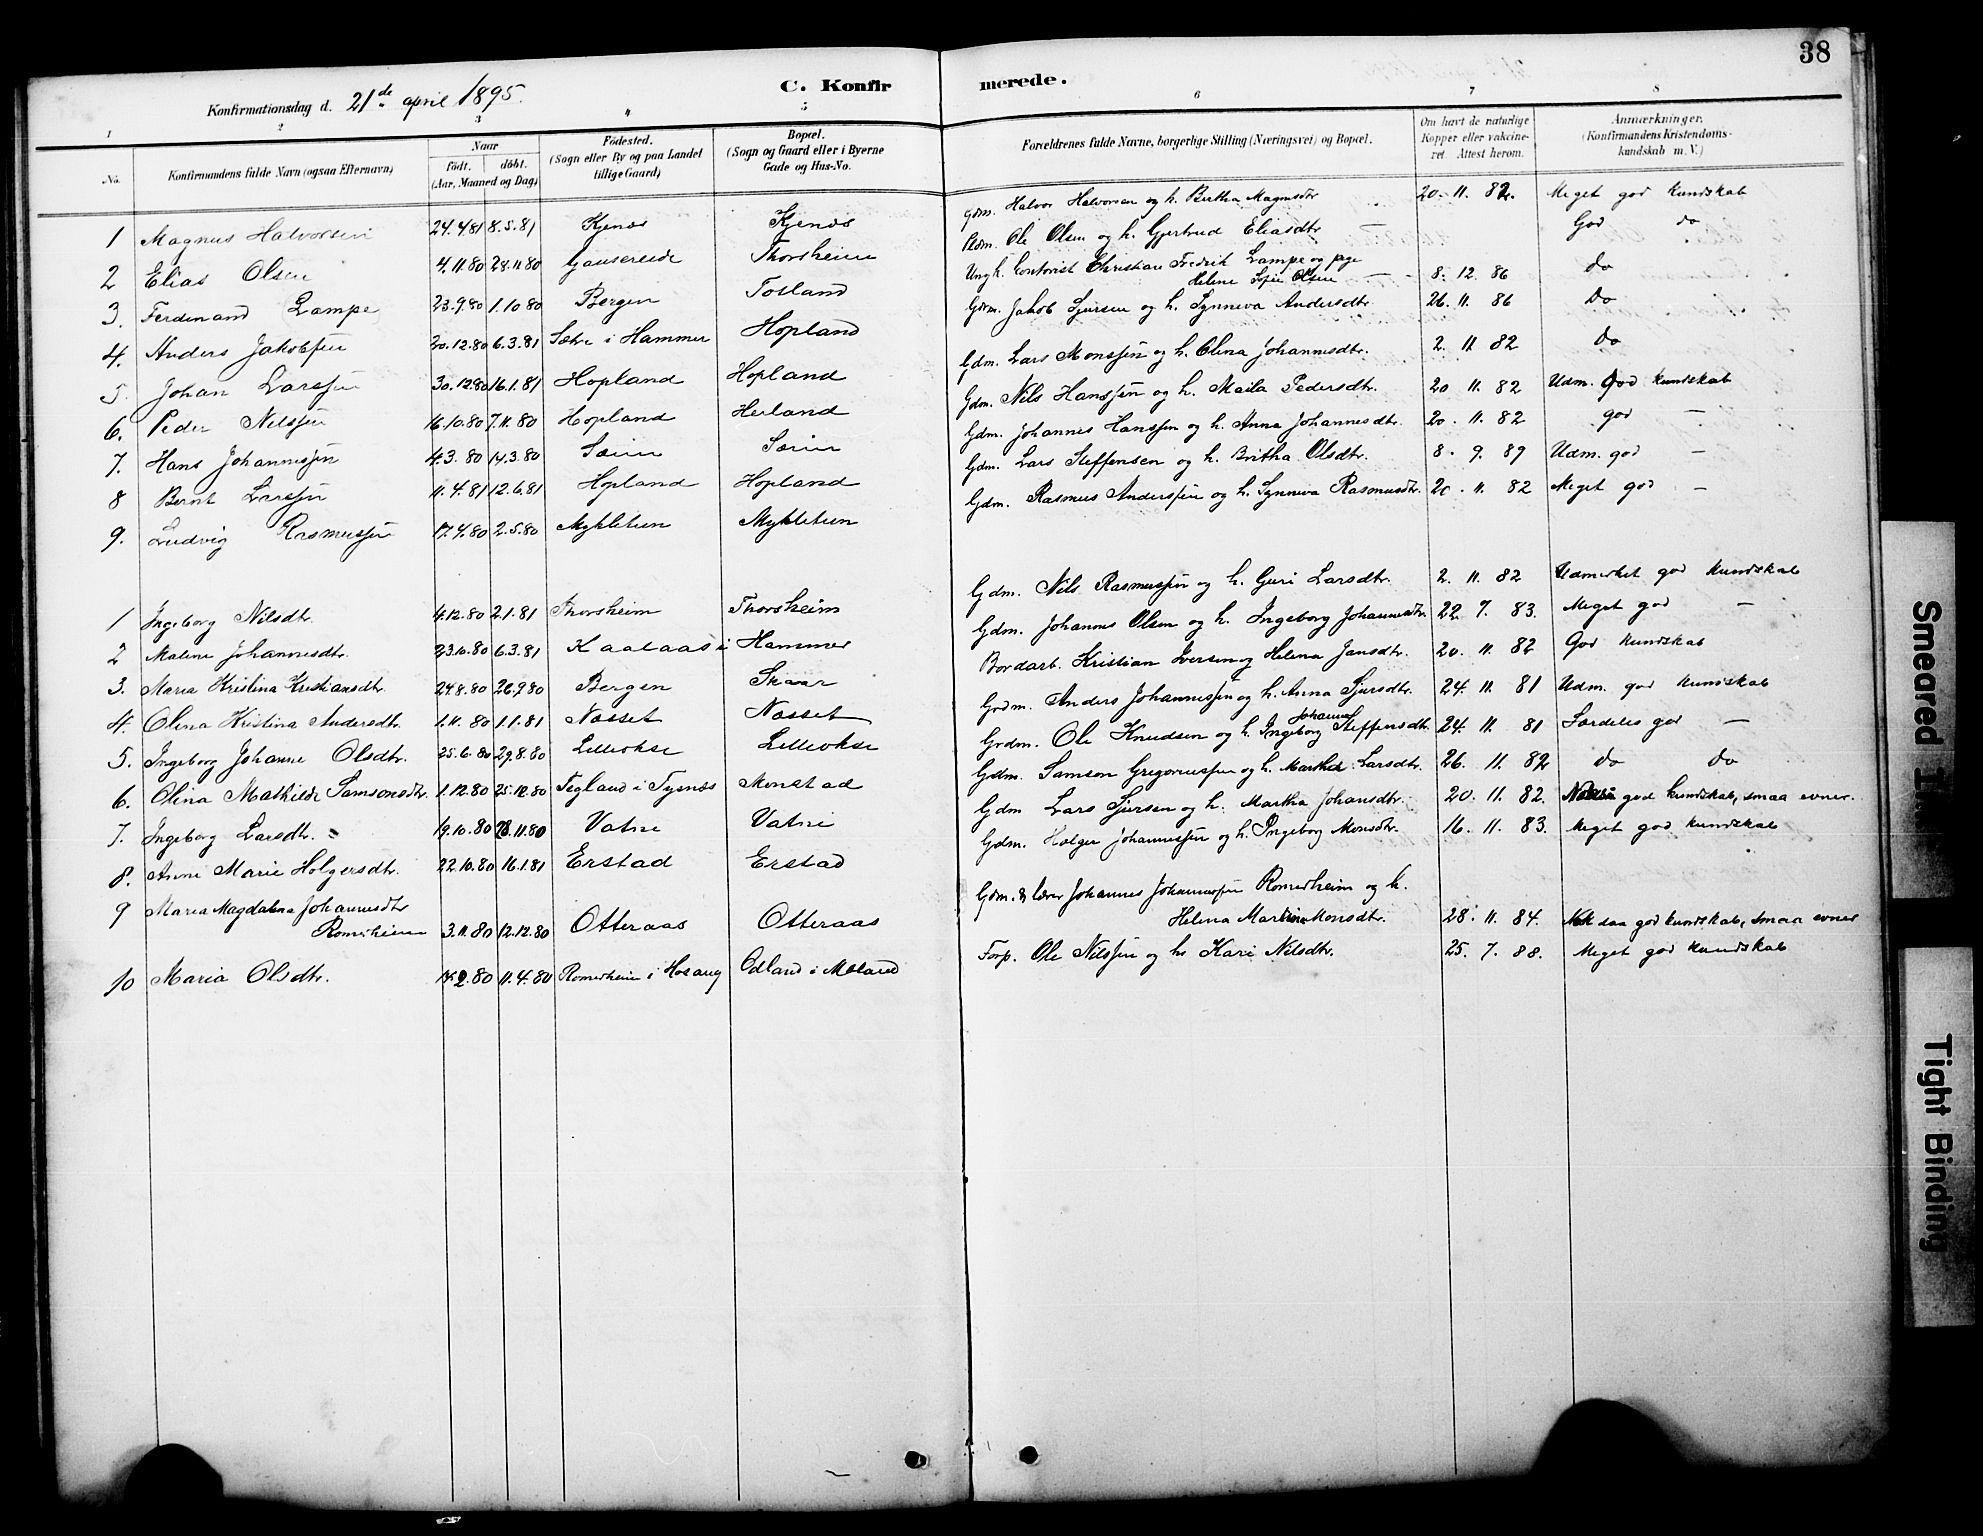 38
C. Konfirmerede.
Konfirmationsdag d. 21de april 1895.
1 2 3 4 5 6 7 8
No. Konfirmandens fulde Navn (ogsaa Efternavn) Naar født. døbt. (Aar, Maaned og Dag) Fødested. (Sogn eller By og paa Landet tillige Gaard) Bopæl. (Sogn og Gaard eller i Byerne Gade og Hus-No. Forældrenes fulde Navne, borgerlige Stilling (Næringsvei) og Bopæl. Om havt de naturlige Kopper eller vakcineret. Attest herom. Anmærkninger. (Konfirmandens Kristendomskundskab m. V.)
1 Magnus Halvorsen 24.4.81 8.5.81 Kjenes Kjenes Gdm. Halvor Halvorsen og h. Bertha Magnusdtr 20. 11. 82. Meget god kundskab
2 Elias Olsen 4.11.80 28.11.80 Thorsheim Ole Olsen og h. Gjertrud Eliasdtr God do
3. Ferdinand Lampe 23.9.80 1.10.80 Bergen Totland Ungk. Kontorist Christian Fredrik Lampe og pige Helene Sofie Olsen 8. 12. 86 do
4. Anders Jakobsen 20.12.80 6.3.81 Sætre i Hammer Hopland Gdm. Jakob Sjursen og h. Synneva Andersdtr. 26. 11. 86 Do
5. Johan Larssen 30.12.80 16.1.81 Hopland Hopland Gdm. Lars Monssen og h. Olina Johannesdtr. 2. 11 82 do
6. Peder Nilssen 16.10.80 7.11.80 Hopland Herland Gdm. Nils Hanssen og h. Maila Pedersdtr. 20 11. 82 Udm. God kundskab
7. Hans Johannessen 4.3.80 14.3.80 Sæim Sæim Gdm. Johannes Hanssen og h. Anna Johannesdtr. 20. 11. 82 god —
8 Bernt Larssen 11.4.81 12.6.81 Hopland Hopland Gdm. Lars Steffensen og h. Britha Olsdtr. 8. 9. 89 Udm. god —
9. Ludvig Rasmussen 17.4.80 2.5.80 Mykletun Mykletun Gdm. Rasmus Anderssen og h. Synneva Rasmusdtr. 20. 11. 82 Meget god —
1 Ingeborg Nilsdtr. 4.12.80 2.1.81 Thorsheim Thorsheim Gdm. Nils Rasmussen og h. Guri Larsdtr. 2. 11. 82 Udmerket god kundskab
2 Malene Johannesdtr. 23.10.80 6.3.81 Kaalaas i Hammer Gdm. Johannes Olsen og h. Ingeborg Johannesdtr. 22. 7. 83. Meget god —
3. Maria Kristina Kristiansdtr. 24.8.80 26.9.80 Bergen Skaar Bordarb. Kristian Iversen og Helena Jansdtr. 20. 11. 82 God kundskab
4. Olina Kristina Andersdtr. 1.11.80 1.1.81 Næsset Næsset Grdm. Anders Johannessen og h. Anna Sjursdtr. 24. 11. 81 Udm. god kundskab
5. Ingeborg Johanne Olsdtr. 25.6.80 29.8.80 Lilleokse Lilleokse Grdm. Ole Knudsen og h. Ingeborg Johanna Steffensdtr. 24. 11. 81 Særdeles god —
6. Olina Mathilde Samsonsdtr. 1.12.80 25.12.80 Tegland i Tysnæs Monstad Gdm. Samson Gregoriussen og h. Martha Larsdtr. 26. 11. 82 do do
7. Ingeborg Larsdtr. 19.10.80 28.11.80 Vatne Vatne Gdm Lars Sjursen og h. Martha Johansdtr. 20. 11. 82. god kundskab, smaa evner.
8. Anne Marie Holgersdtr. 22.10.80 16.1.81 Erstad Erstad Gdm. Holger Johannessen og h. Ingeborg Monsdtr. 16. 11. 83. Meget god kundskab
9 Maria Magdalena Johannesdtr Romerheim 3.11.80 12.12.80 Otteraas Otteraas Gdm. & lærer Johannes Johannessen Romerheim og h. Helena Martina Monsdtr. 28. 11. 84. Nok saa god kundskab, smaa evner
10 Maria Olsdtr. 80 11.4.80 Romerheim i Hosang Odland i Moland Forp. Ole Nilssen og h. Kari Nilsdtr. 25. 7. 88. Meget god kundskab
Smeared Ink
Tight Binding